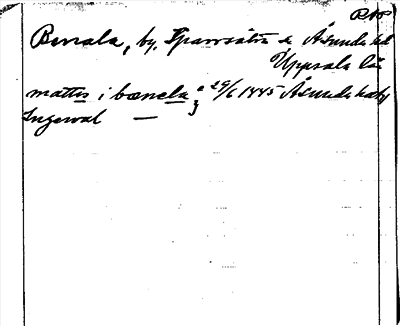 Benala, by, Sparrsätra sn Åsunda hd
Uppsala län
mattis i bænela 29/6 1445 Åsunda
Ingewal —